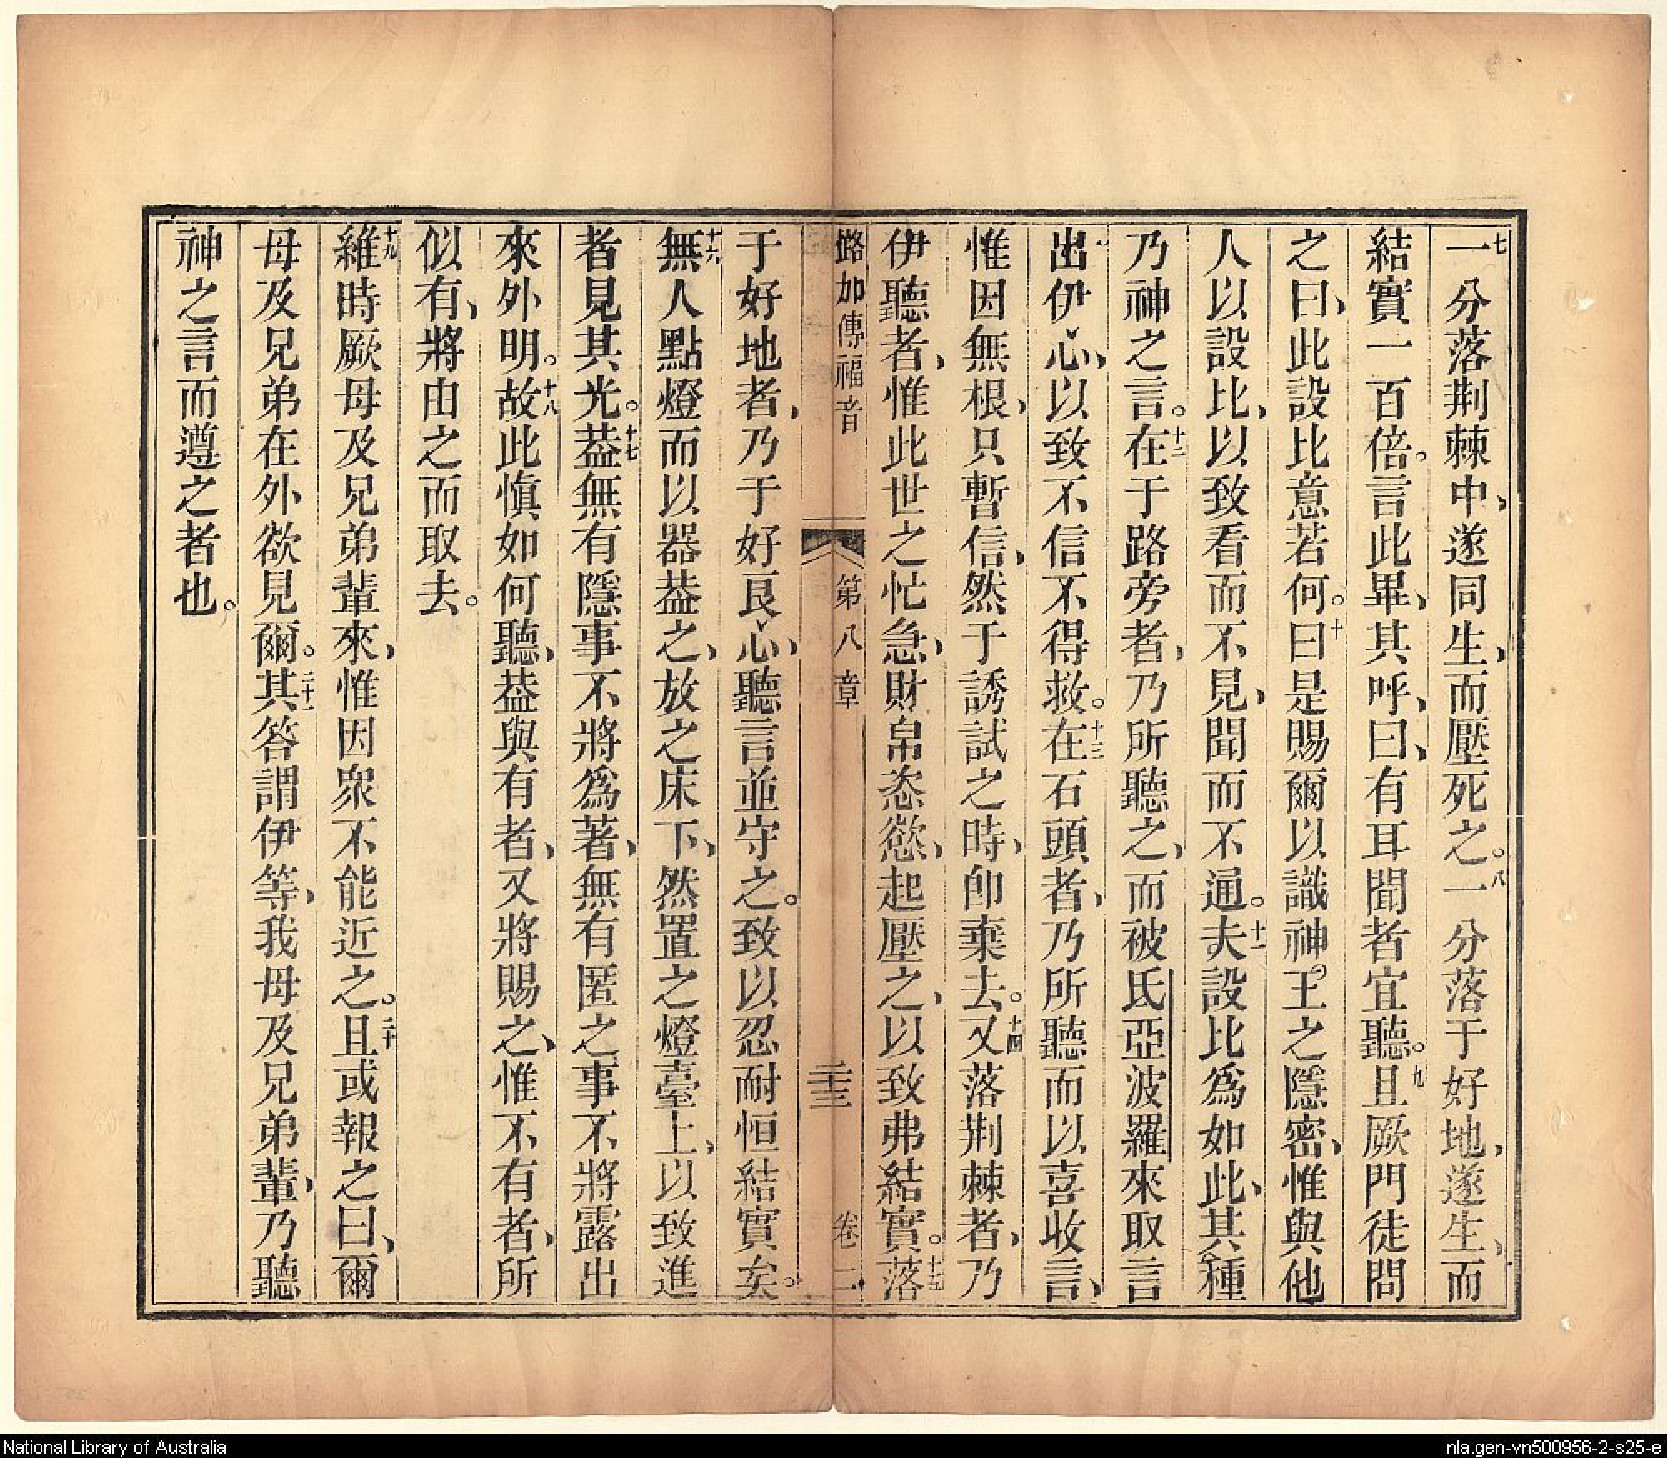 七一分落荆棘中、遂同生、而壓死之。八一分落于好地、遂生、而
結實一百倍。言此畢、其呼、曰、有耳聞者宜聽。九且厥門徒問
之曰、此設比意若何。十曰是賜爾以識神王之隱密、惟與他
人以設比、以致看而不見、聞而不通。十一夫設比為如此、其種
乃神之言。十二在于路旁者、乃所聽之、而被氐亞波羅來取言
出伊心、以致不信不得救。十三在石頭者、乃所聽而以喜收言、
惟因無根、只暫信、然于誘試之時、卽棄去。十四又落荆棘者、乃
伊聽者、惟此世之忙急、財帛恣慾、起壓之、以致弗結實。十五落
路加傳福音 第八章 二十三 卷二
于好地者、乃于好良心、聽言並守之。致以忍耐恒結實矣。
十六無人點燈而以器葢之、放之床下、然置之燈臺上、以致進
者見其光。十七葢無有隱事不將為著、無有匿之事不將露出
來外明。十八故此慎如何聽、葢與有者、又將賜之、惟不有者、所
似有、將由之而取去。
十九維時厥母及兄弟輩來、惟因眾不能近之。二十且或報之曰、爾
母及兄弟在外欲見爾。二十一其答謂伊等、我母及兄弟輩、乃聽
神之言而遵之者也。
National Library of Australia
nla.gen-vn500956-2-s25-e